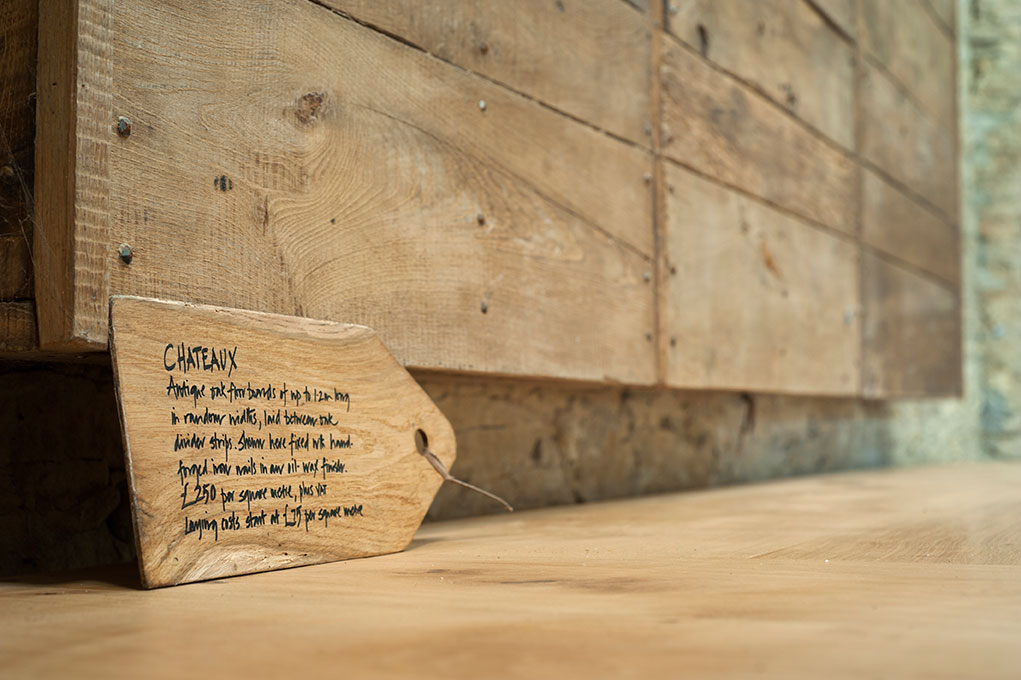 CHATEAUX
Antique oak floorboards of up to 1·2m long
in random widths, laid between oak
divider strips. Shown here fixed with hand-
forged iron nails in our oil-wax finish.
£250 per square metre, plus VAT
Laying costs start at £75 per square metre